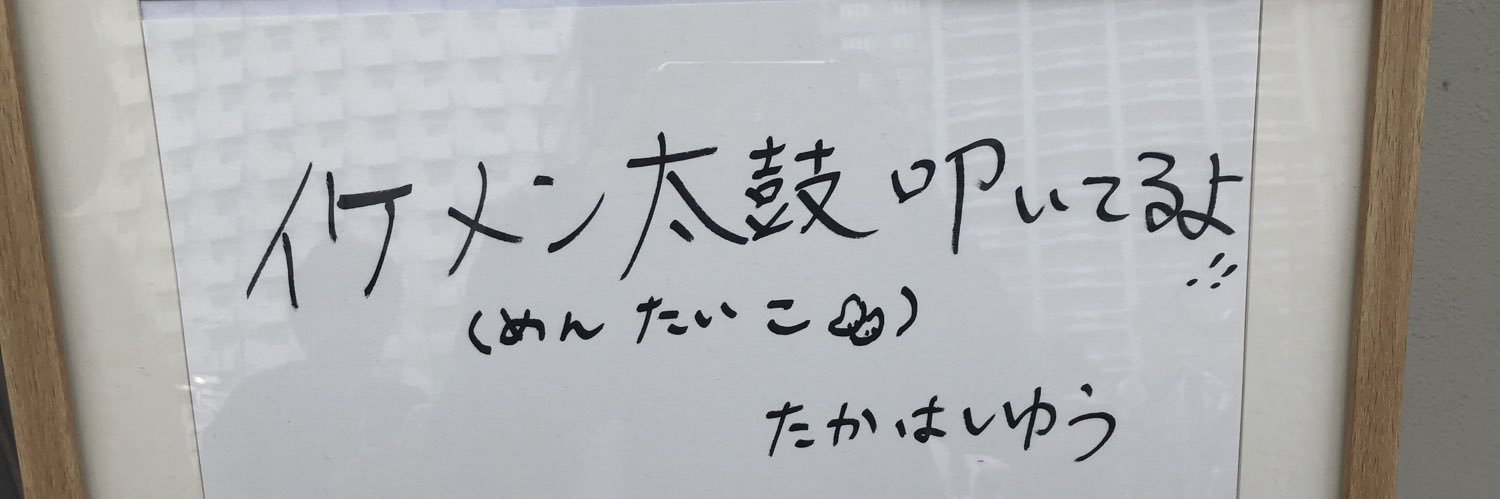 イケメン太鼓叩いてるよ
(めんたいこ)
たかはしゆう